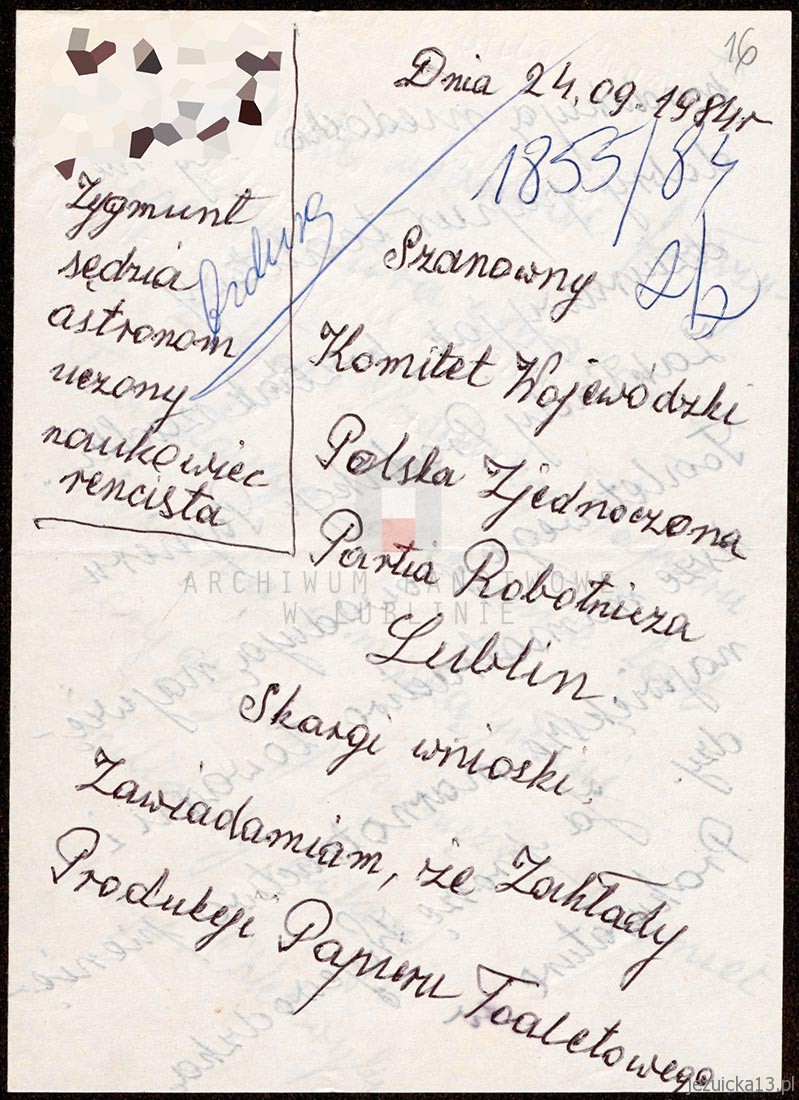 16
Dnia 24.09.1984r
1855/84
Zygmunt
sędzia
astronom
uczony
naukowiec
rencista
Szanowny
Komitet Wojewódzki
Polska Zjednoczona
Partia Robotnicza
Lublin.
ARCHIWUM PAŃSTWOWE
W LUBLINIE
Skargi wnioski.
Zawiadamiam, że Zakłady
Produkcji Papieru Toaletowego
jezuicka13.pl